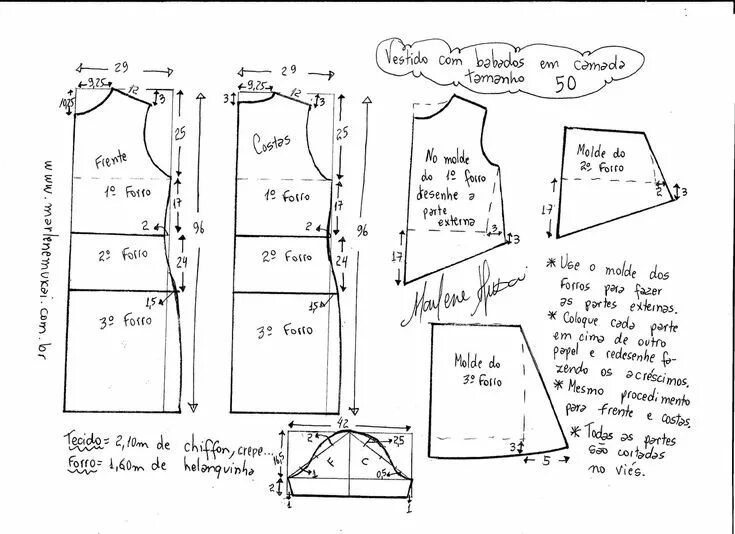 Vestido com babados em camada
tamanho 50
29
9,25
12
3
10,25
25
Frente
1º Forro
17
2
96
2º Forro
24
1,5
3º Forro
29
9,25
12
3
3
25
Costas
1º Forro
17
2
96
2º Forro
24
1,5
3º Forro
www.marlenemukai.com.br
No molde
do 1º forro
desenhe a
parte
externa
3
3
17
Marlene Mukai
Molde do
2º Forro
2
3
17
Molde do
3º Forro
3
5
* Use o molde dos
forros para fazer
as partes externas.
* Coloque cada parte
em cima de outro
papel e redesenhe fa-
zendo os acréscimos.
* Mesmo procedimento
para frente e costas.
* Todas as partes
são cortadas
no viés.
Tecido = 2,10m de chiffon, crepe...
Forro = 1,60m de helanquinha
42
2
2,5
16,5
F
C
1
0,5
2
1
1